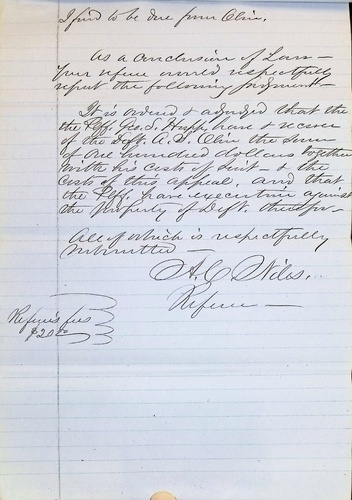 I find to be due from Olin.
As a conclusion of Law –
Your referee would respectfully
report the following Judgment –
It is ordered & adjudged that the
the Plff. Geo. S. Hupp, have & recover
of the Deft. A. S. Olin the sum
of One hundred dollars together
with his costs of suit – & the
costs of this appeal, and that
the Plff. have execution against
the Property of Deft. therefor –
All of which is respectfully
submitted –
A. C. Niles.
Referee –
Referee's fees
$20.00